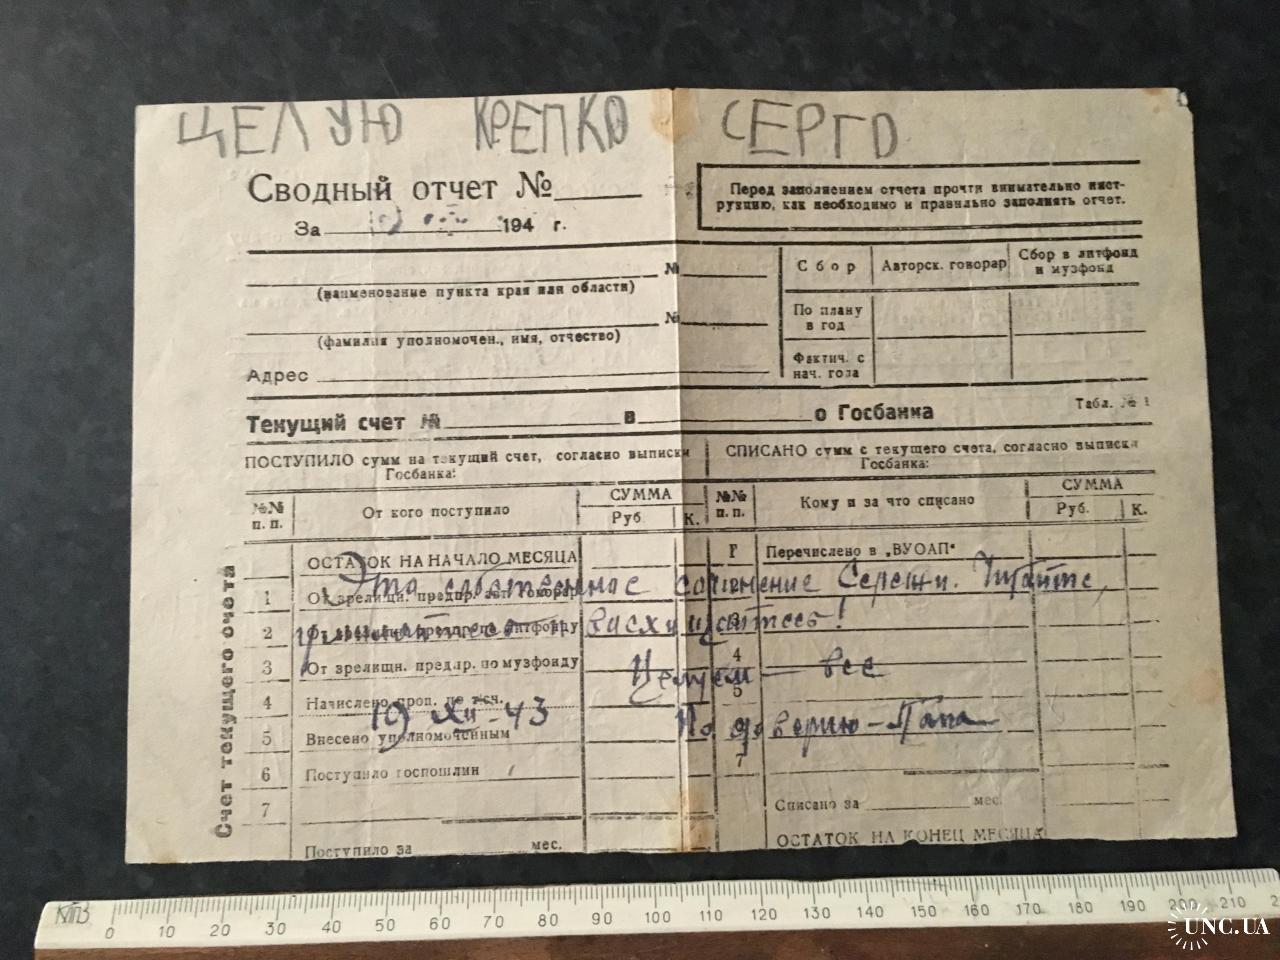 ЦЕЛУЮ КРЕПКО СЕРГО
Сводный отчет №
За 194 г.
Перед заполнением отчета прочти внимательно инст-
рукцию, как необходимо и правильно заполнять отчет.
№
(наименование пункта края или области)
№
(фамилия уполномочен., имя, отчество)
Адрес
Сбор Авторск. говорар Сбор в литфонд и музфонд
По плану в год
Фактич. с нач. года
Текущий счет № в о Госбанка
Табл. № 1
ПОСТУПИЛО сумм на текущий счет, согласно выписки Госбанка:
СПИСАНО сумм с текущего счета, согласно выписки Госбанка:
№№ п. п. От кого поступило СУММА Руб. К.
№№ п. п. Кому и за что списано СУММА Руб. К.
Счет текущего счета
ОСТАТОК НА НАЧАЛО МЕСЯЦА
1 От зрелищн. предпр. авт. гонорар
2 От зрелищн. предпр. по литфонду
3 От зрелищн. предпр. по музфонду
4 Начислено проп. по тсч.
5 Внесено уполномоченным
6 Поступило госпошлин
7
Поступило за мес.
Перечислено в „ВУОАП"
4
5
7
Списано за мес.
ОСТАТОК НА КОНЕЦ МЕСЯЦА
Это собственное сочинение Сережи. Читайте,
и восхищайтесь!
Целуем — все
19 XII-43 По доверию - Папа
КПЗ
0 10 20 30 40 50 60 70 80 90 100 110 120 130 140 150 160 170 180 190 200 210 2
UNC.UA